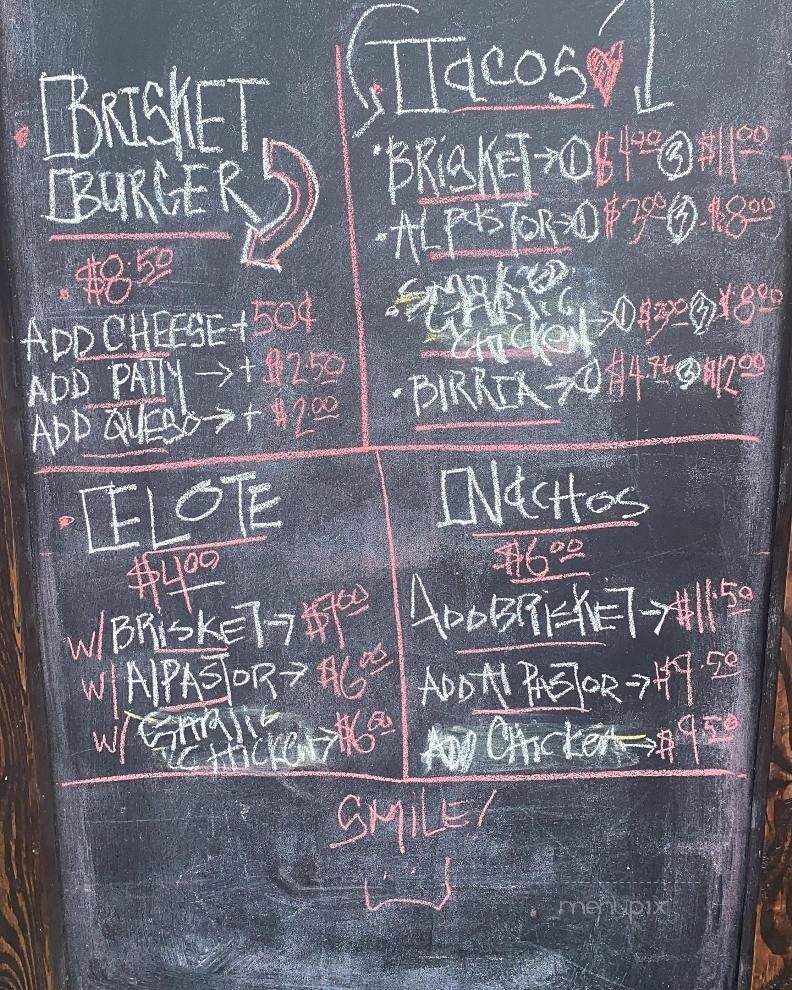 BRISKET
BURGER
$8.50
ADD CHEESE + 50¢
ADD PATTY → + $2.50
ADD QUESO → + $2.00
TACOS
• BRISKET → ① $4.00 ③ $11.00
• ALPASTOR → ① $3.00 ③ $8.00
• SMOKED
GARLIC
CHICKEN → ① $3.00 ③ $8.00
• BIRRIA → ① $4.75 ③ $12.00
ELOTE
$4.00
W/ BRISKET → $7.00
W/ AlPASTOR → $6.00
W/ GARLIC
CHICKEN → $6.00
NACHOS
$6.00
ADD BRISKET → $11.50
ADD Al PASTOR → $9.50
ADD CHICKEN → $9.50
SMILE!
menupix